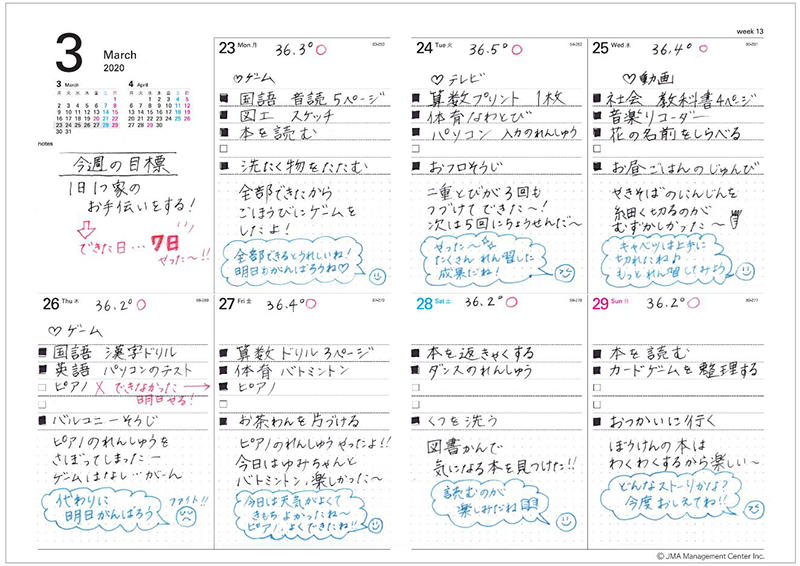 week 13
3
March
2020
3 March
月 火 水 木 金 土 日
1
2 3 4 5 6 7 8
9 10 11 12 13 14 15
16 17 18 19 20 21 22
23 24 25 26 27 28 29
30 31
4 April
月 火 水 木 金 土 日
1 2 3 4 5
6 7 8 9 10 11 12
13 14 15 16 17 18 19
20 21 22 23 24 25 26
27 28 29 30
notes
今週の目標
1日1つ家の
お手伝いをする!
できた日…7日
やった〜!!
23 Mon 月 36.3°○
♡ゲーム
国語 音読 5ページ
図工 スケッチ
本を読む
洗たく物をたたむ
全部できたから
ごほうびにゲームを
したよ!
全部できるとうれしいね!
明日もがんばろうね♡
24 Tue 火 36.5°○
♡テレビ
算数プリント 1枚
体育なわとび
パソコン 入力のれんしゅう
おフロそうじ
二重とびが3回も
つづけてできた〜!
次は5回にちょうせんだ〜
やった〜
たくさんれん習した
成果だね!
25 Wed 水 36.4°○
♡動画
社会 教科書4ページ
音楽リコーダー
花の名前をしらべる
お昼ごはんのじゅんび
やきそばのにんじんを
細く切るのが
むずかしかった〜
キャベツは上手に
切れたね♪
もっとれん習してみよう
26 Thu 木 36.2°○
♡ゲーム
国語 漢字ドリル
英語 パソコンのテスト
ピアノ × できなかった→
明日やる!
バルコニーそうじ
ピアノのれんしゅうを
さぼってしまったー
ゲームはなし…がーん
代わりに
明日がんばろう
ファイト!!
27 Fri 金 36.4°○
算数ドリル3ページ
体育 バトミントン
ピアノ
お茶わんを片づける
ピアノのれんしゅうやったよ!!
今日はゆみちゃんと
バトミントン、楽しかった〜
今日は天気がよくて
きもちよかったね〜
ピアノ、よくできたね!!
28 Sat 土 36.2°○
本を返きゃくする
ダンスのれんしゅう
くつを洗う
図書かんで
気になる本を見つけた!!
読むのが
楽しみだね
29 Sun 日 36.2°○
本を読む
カードゲームを整理する
おつかいに行く
ぼうけんの本は
わくわくするから楽しい〜
どんなストーリかな?
今度おしえてね!!
© JMA Management Center Inc.